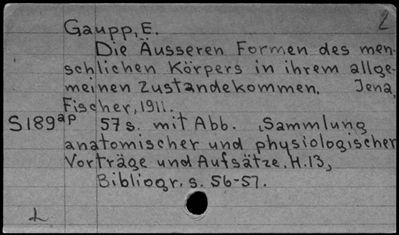 2
Gaupp, E.
Die Äusseren Formen des men-
schlichen Körpers in ihrem allge-
meinen Zustandekommen. Jena,
Fischer, 1911.
S189ap 57 s. mit Abb. (Sammlung
anatomischer und physiologischer
Vorträge und Aufsätze. H.13)
Bibliogr. s. 56-57.
L